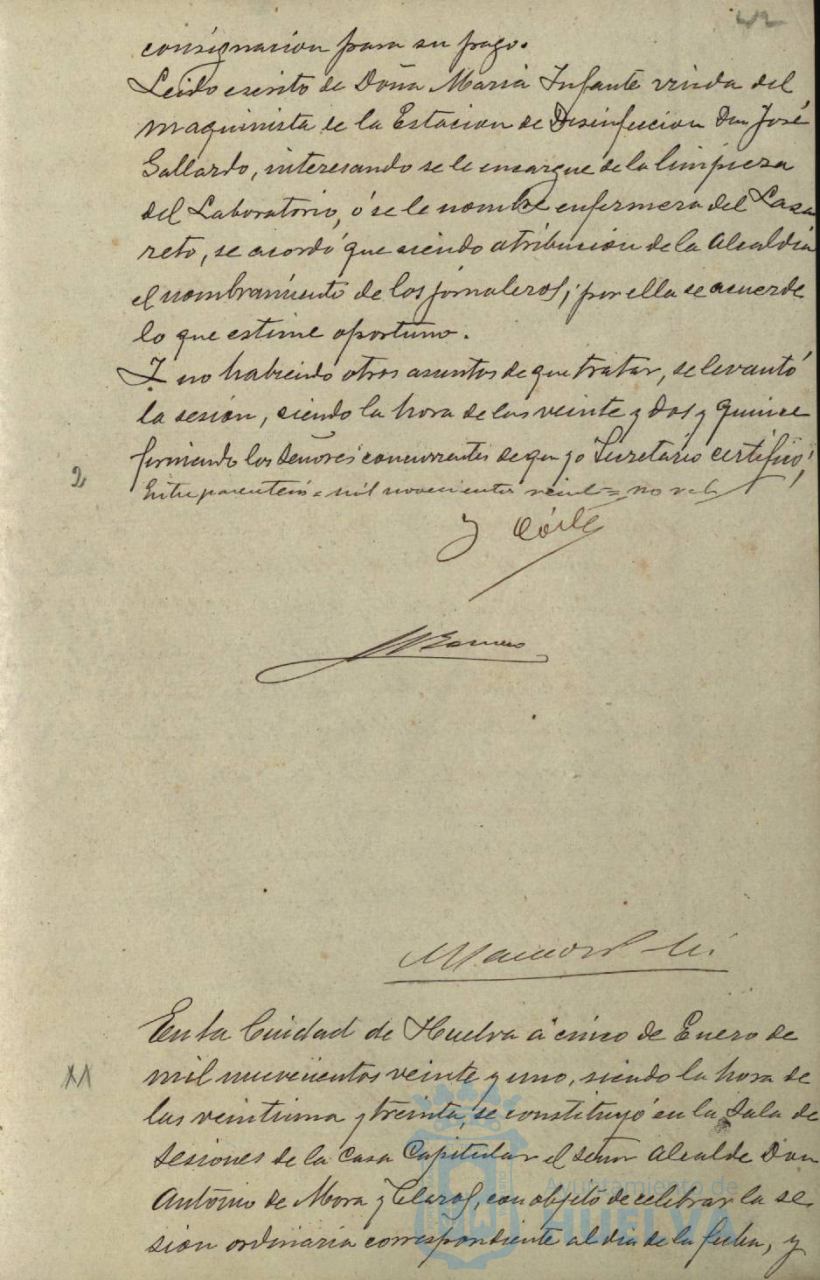 42
consignacion para su pago.
Leido escrito de Doña Maria Infante viuda del
maquinista de la Estacion de Desinfeccion Don José
Gallardo, interesando se le encargue de la limpieza
del Laboratorio, ó se le nombre enfermera del Laza
reto, se acordó que siendo atribucion de la Alcaldia
el nombramiento de los jornaleros, por ella se acuerde
lo que estime oportuno.
Y no habiendo otros asuntos de que tratar, se levantó
la sesión, siendo la hora de las veinte y dos y quince
firmando los Señores concurrentes de que yo Secretario certifico;
2
Entre parentesis = mil novecientos veinte = no vale
En la Ciudad de Huelva á cinco de Enero de
mil nuevecientos veinte y uno, siendo la hora de
las veintiuna y treinta, se constituyó en la Sala de
Sesiones de la Casa Capitular el señor Alcalde Don
Antonio de Mora y Claros, con objeto de celebrar la se
sion ordinaria correspondiente al dia de la fecha, y
Ayuntamiento de
HUELVA